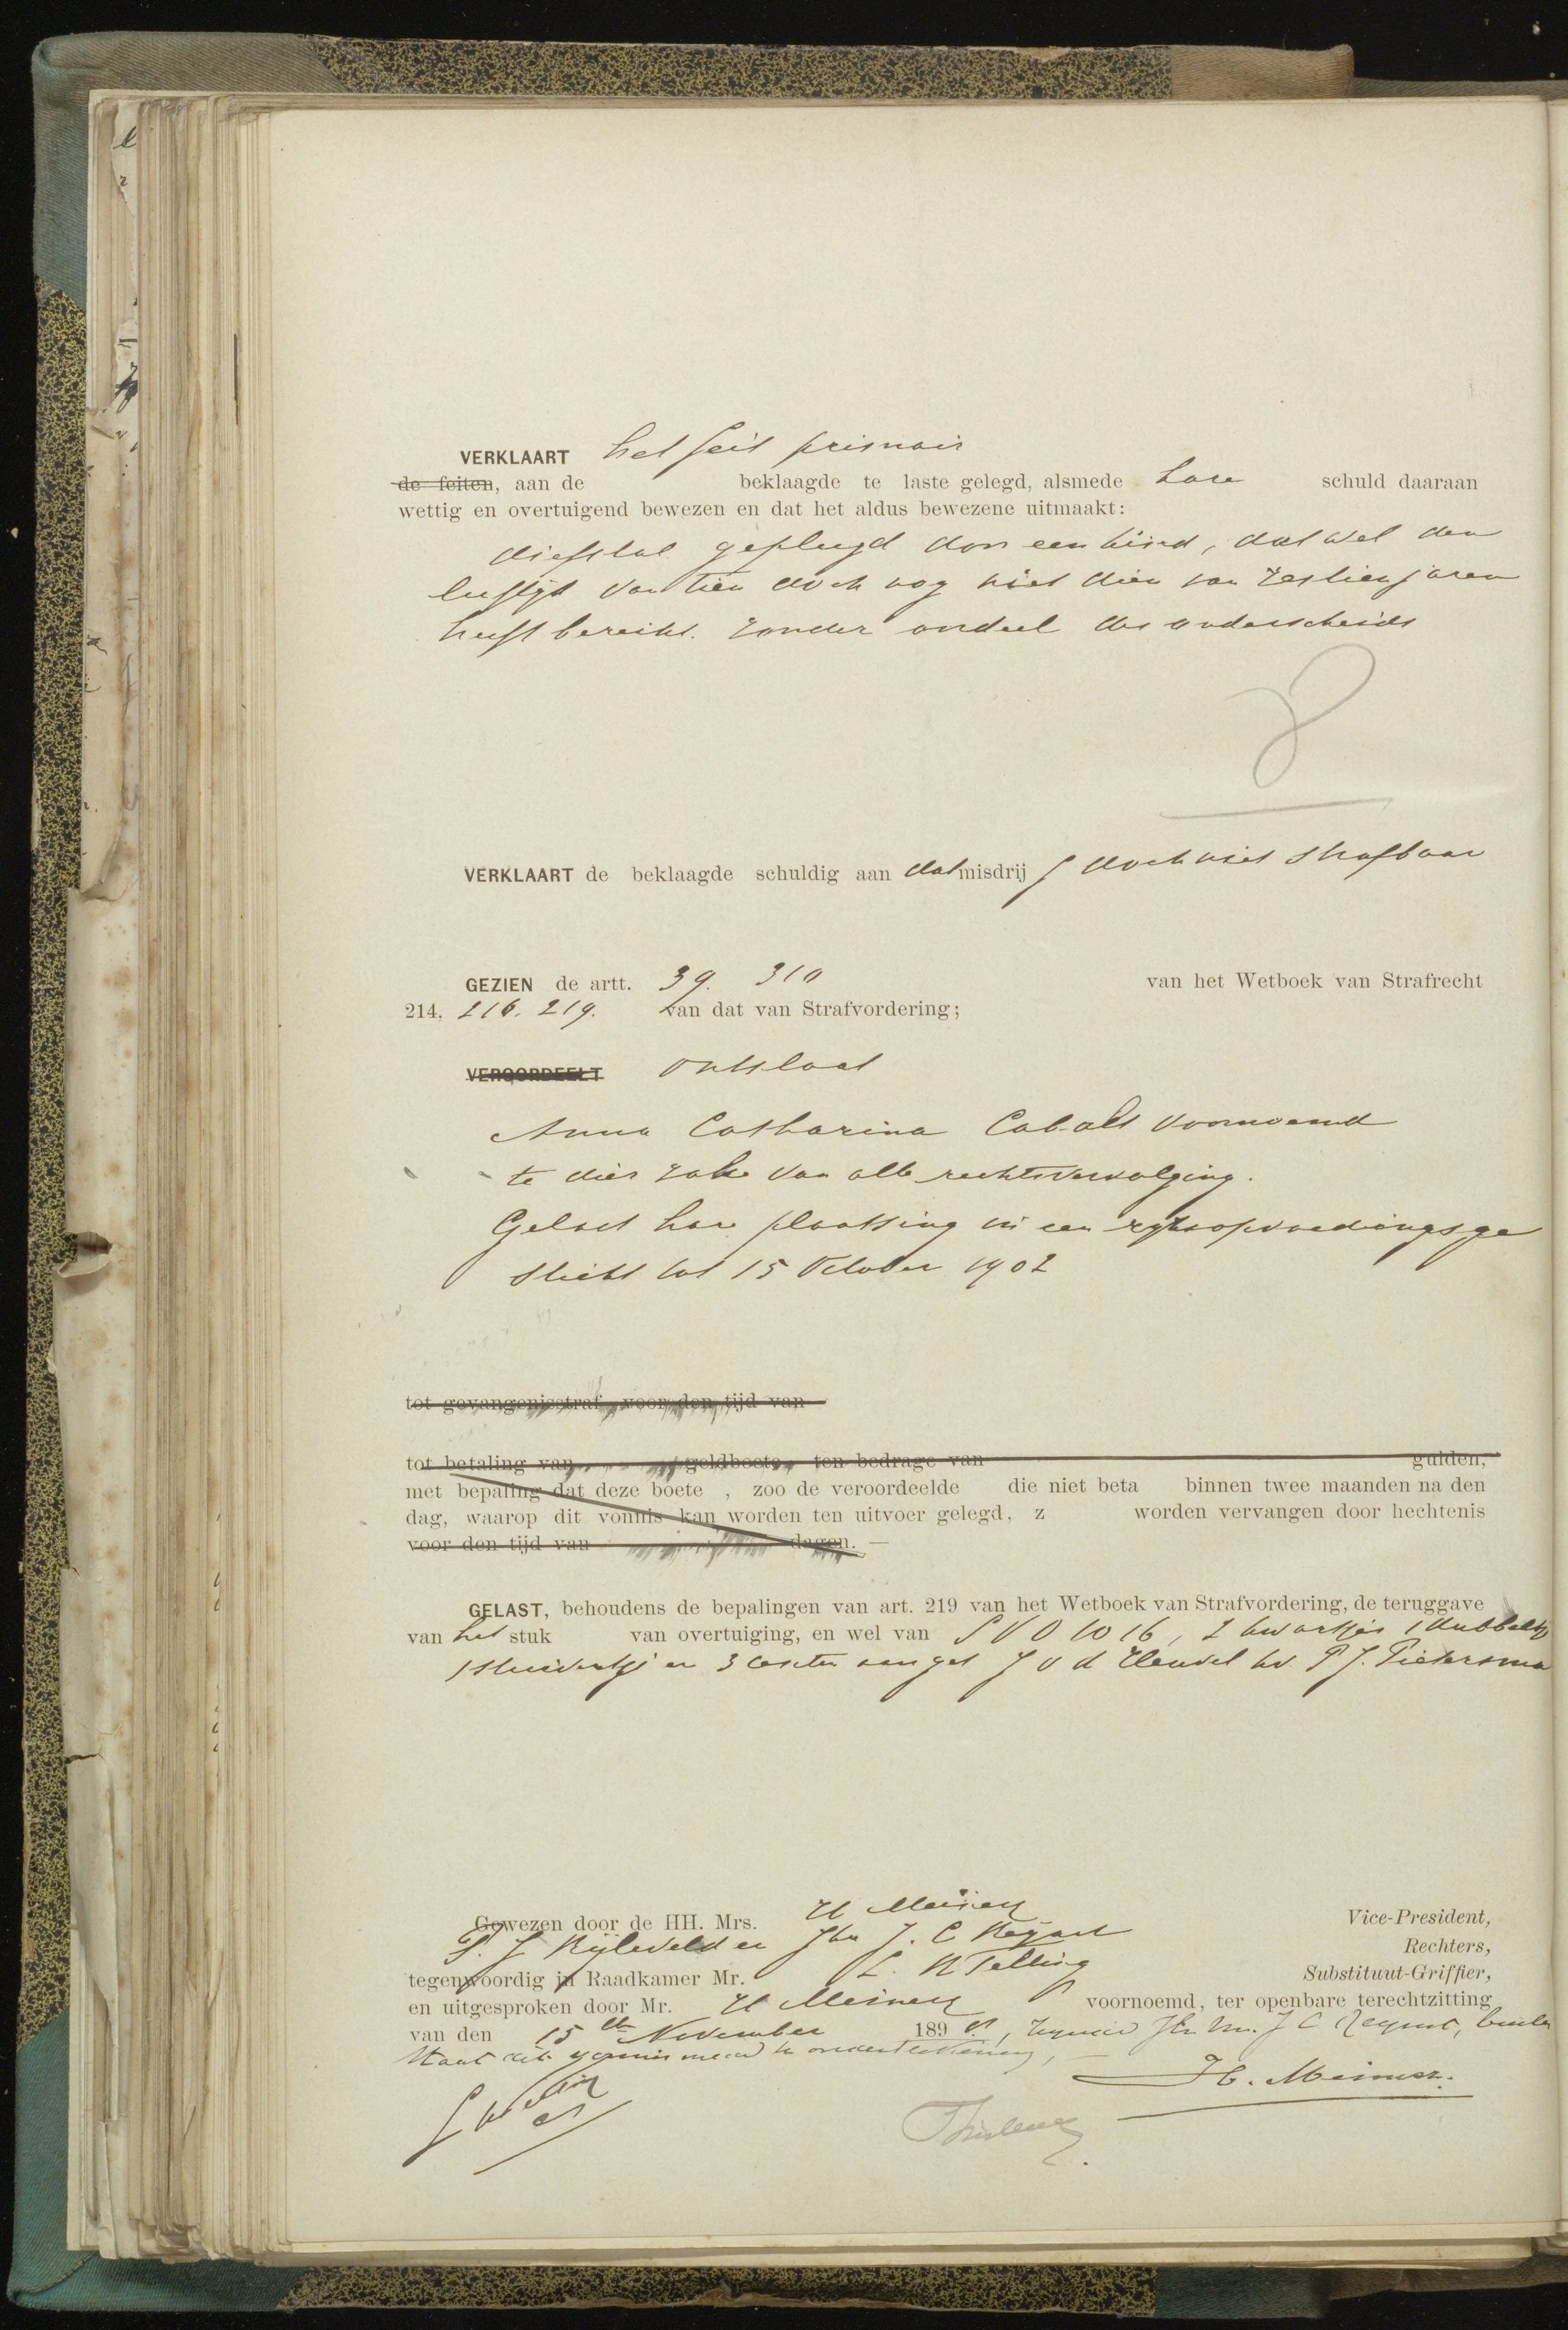 VERKLAART het feit primair
de feiten, aan de beklaagde te laste gelegd, alsmede hare schuld daaraan
wettig en overtuigend bewezen en dat het aldus bewezene uitmaakt:
diefstal gepleegd door een kind, dat wel den
leeftijd van tien doch nog niet dien van zestien jaren
heeft bereikt. zonder oordeel des onderscheids
VERKLAART de beklaagde schuldig aan dat misdrijf doch niet strafbaar
GEZIEN de artt. 39. 310 van het Wetboek van Strafrecht
214, 216. 219. van dat van Strafvordering;
VEROORDEELT ontslaat
Anna Catharina Cabalt voornoemd
te dier zake van alle rechtsvervolging.
Gelast hare plaatsing in een rijksopvoedingsge
sticht tot 15 October 1902
tot gevangenisstraf voor den tijd van
tot betaling van geldboete ten bedrage van gulden,
met bepaling dat deze boete , zoo de veroordeelde die niet beta binnen twee maanden na den
dag, waarop dit vonnis kan worden ten uitvoer gelegd, z worden vervangen door hechtenis
voor den tijd van dagen. —
GELAST, behoudens de bepalingen van art. 219 van het Wetboek van Strafvordering, de teruggave
van het stuk van overtuiging, en wel van S V O 10 16, 2 kwartjes 1 dubbeltje
1 stuivertje en 3 centen aan get J v d Heuvel hv. P J. Pietersma
Gewezen door de HH. Mrs. H Meinesz Vice-President,
P. J Bijleveld en Jhr J. C Reijnst Rechters,
tegenwoordig in Raadkamer Mr. L. N Telling Substituut-Griffier,
en uitgesproken door Mr. H Meinesz voornoemd, ter openbare terechtzitting
van den 15 den November 189 , zijnde Jhr Mr. J C Reijnst, buiten
staat dit vonnis mede te onderteekenen,
H. Meinesz.